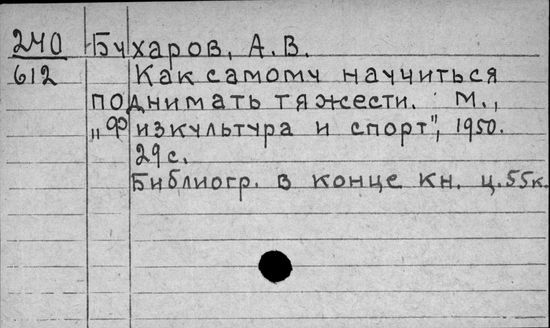 240 Бухаров, А.В.
612 Как самому научиться
поднимать тяжести. М.,
„Физкультура и спорт", 1950.
29с.
Библиогр. в конце кн. ц.55к.